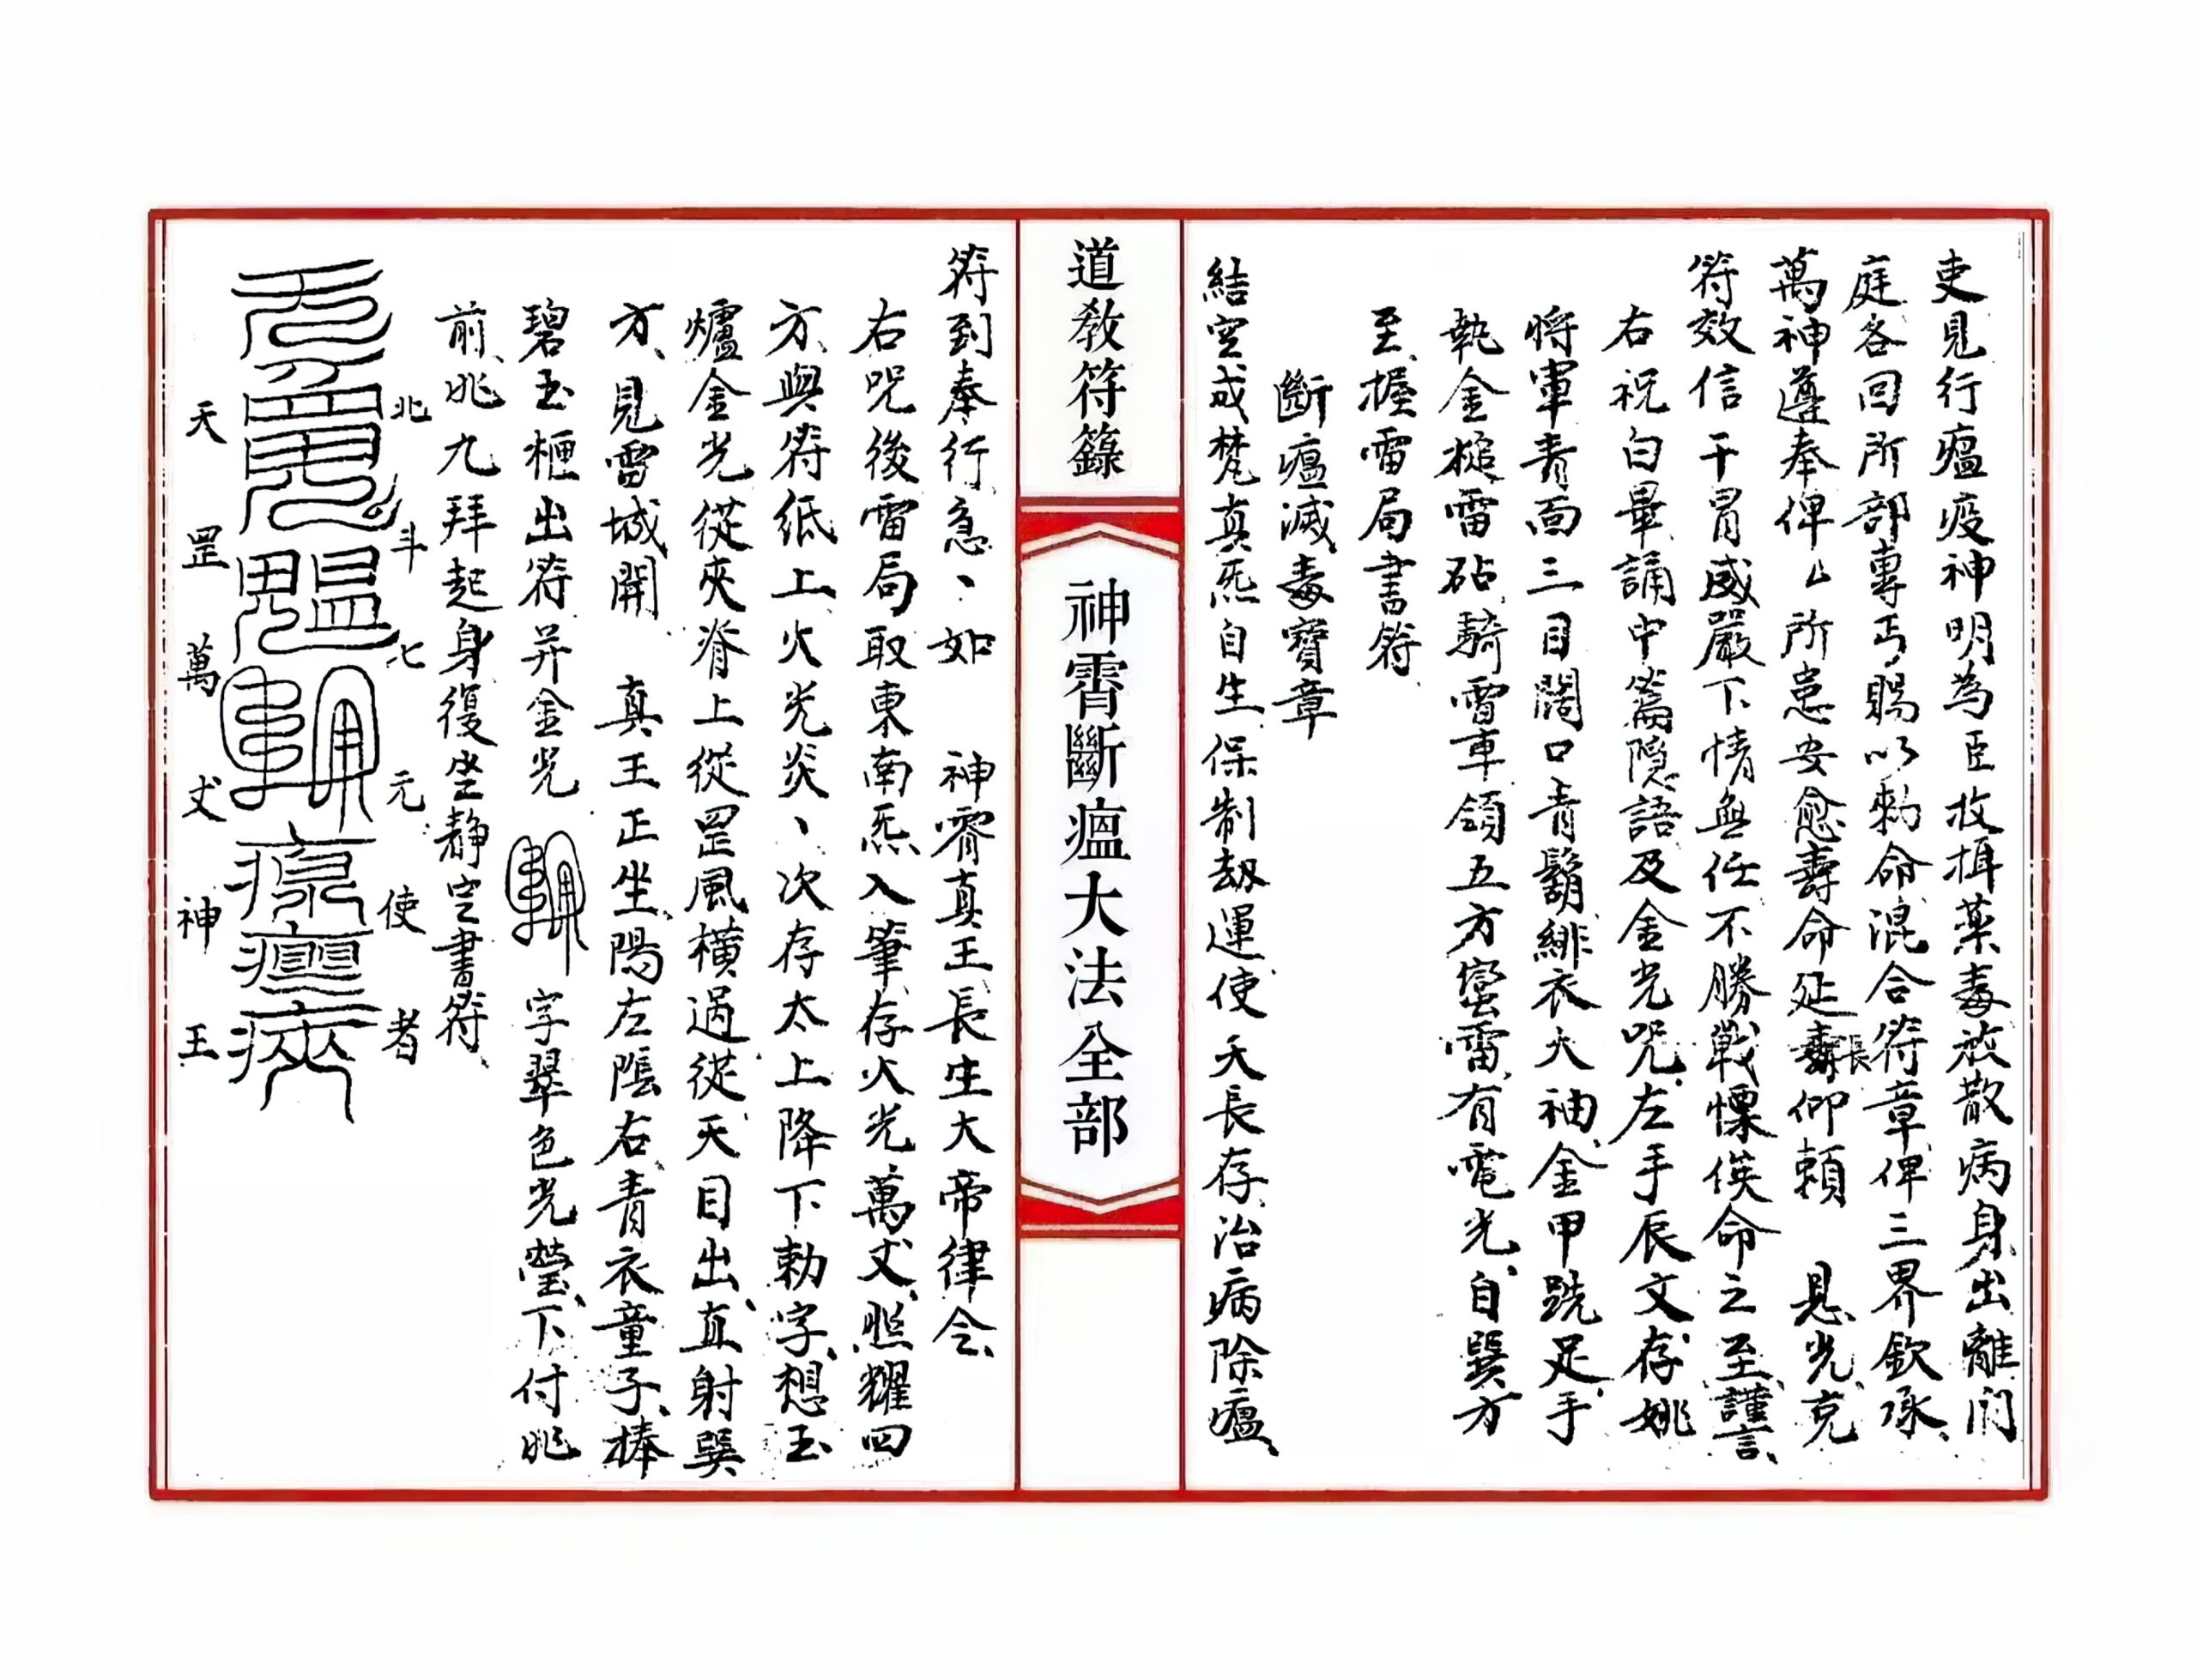 吏見行瘟疫神明為臣收揖藥毒放散病身出離门
庭各回所部專丐賜以勑命混合符章俾三界欽承
萬神遵奉俾厶所患安愈壽命延長仰賴 恩光克
符效信干冒威嚴下情無任不勝戰慄俟命之至謹言
右祝白畢誦中篇隱語及金光咒左手辰文存姚
將軍青面三目闊口青鬍緋衣大袖金甲跣足手
執金槌雷砧騎雷車領五方蠻雷有電光自巽方
至握雷局書符
斷瘟滅毒寶章
結空成梵真炁自生保制劫運使天長存治病除瘟
道教符籙
神霄斷瘟大法全部
符到奉行急丶如 神霄真王長生大帝律令
右咒後雷局取東南炁入筆存火光萬丈照耀四
方與符紙上火光炎丶次存太上降下勅字想玉
爐金光從夾脊上從罡風橫過從天目出直射巽
方見雷城開 真王正坐陽左陰右青衣童子捧
碧玉柙出符并金光 字翠色光瑩下付兆
前兆九拜起身復坐靜空書符
北斗七元使者
天罡萬丈神王